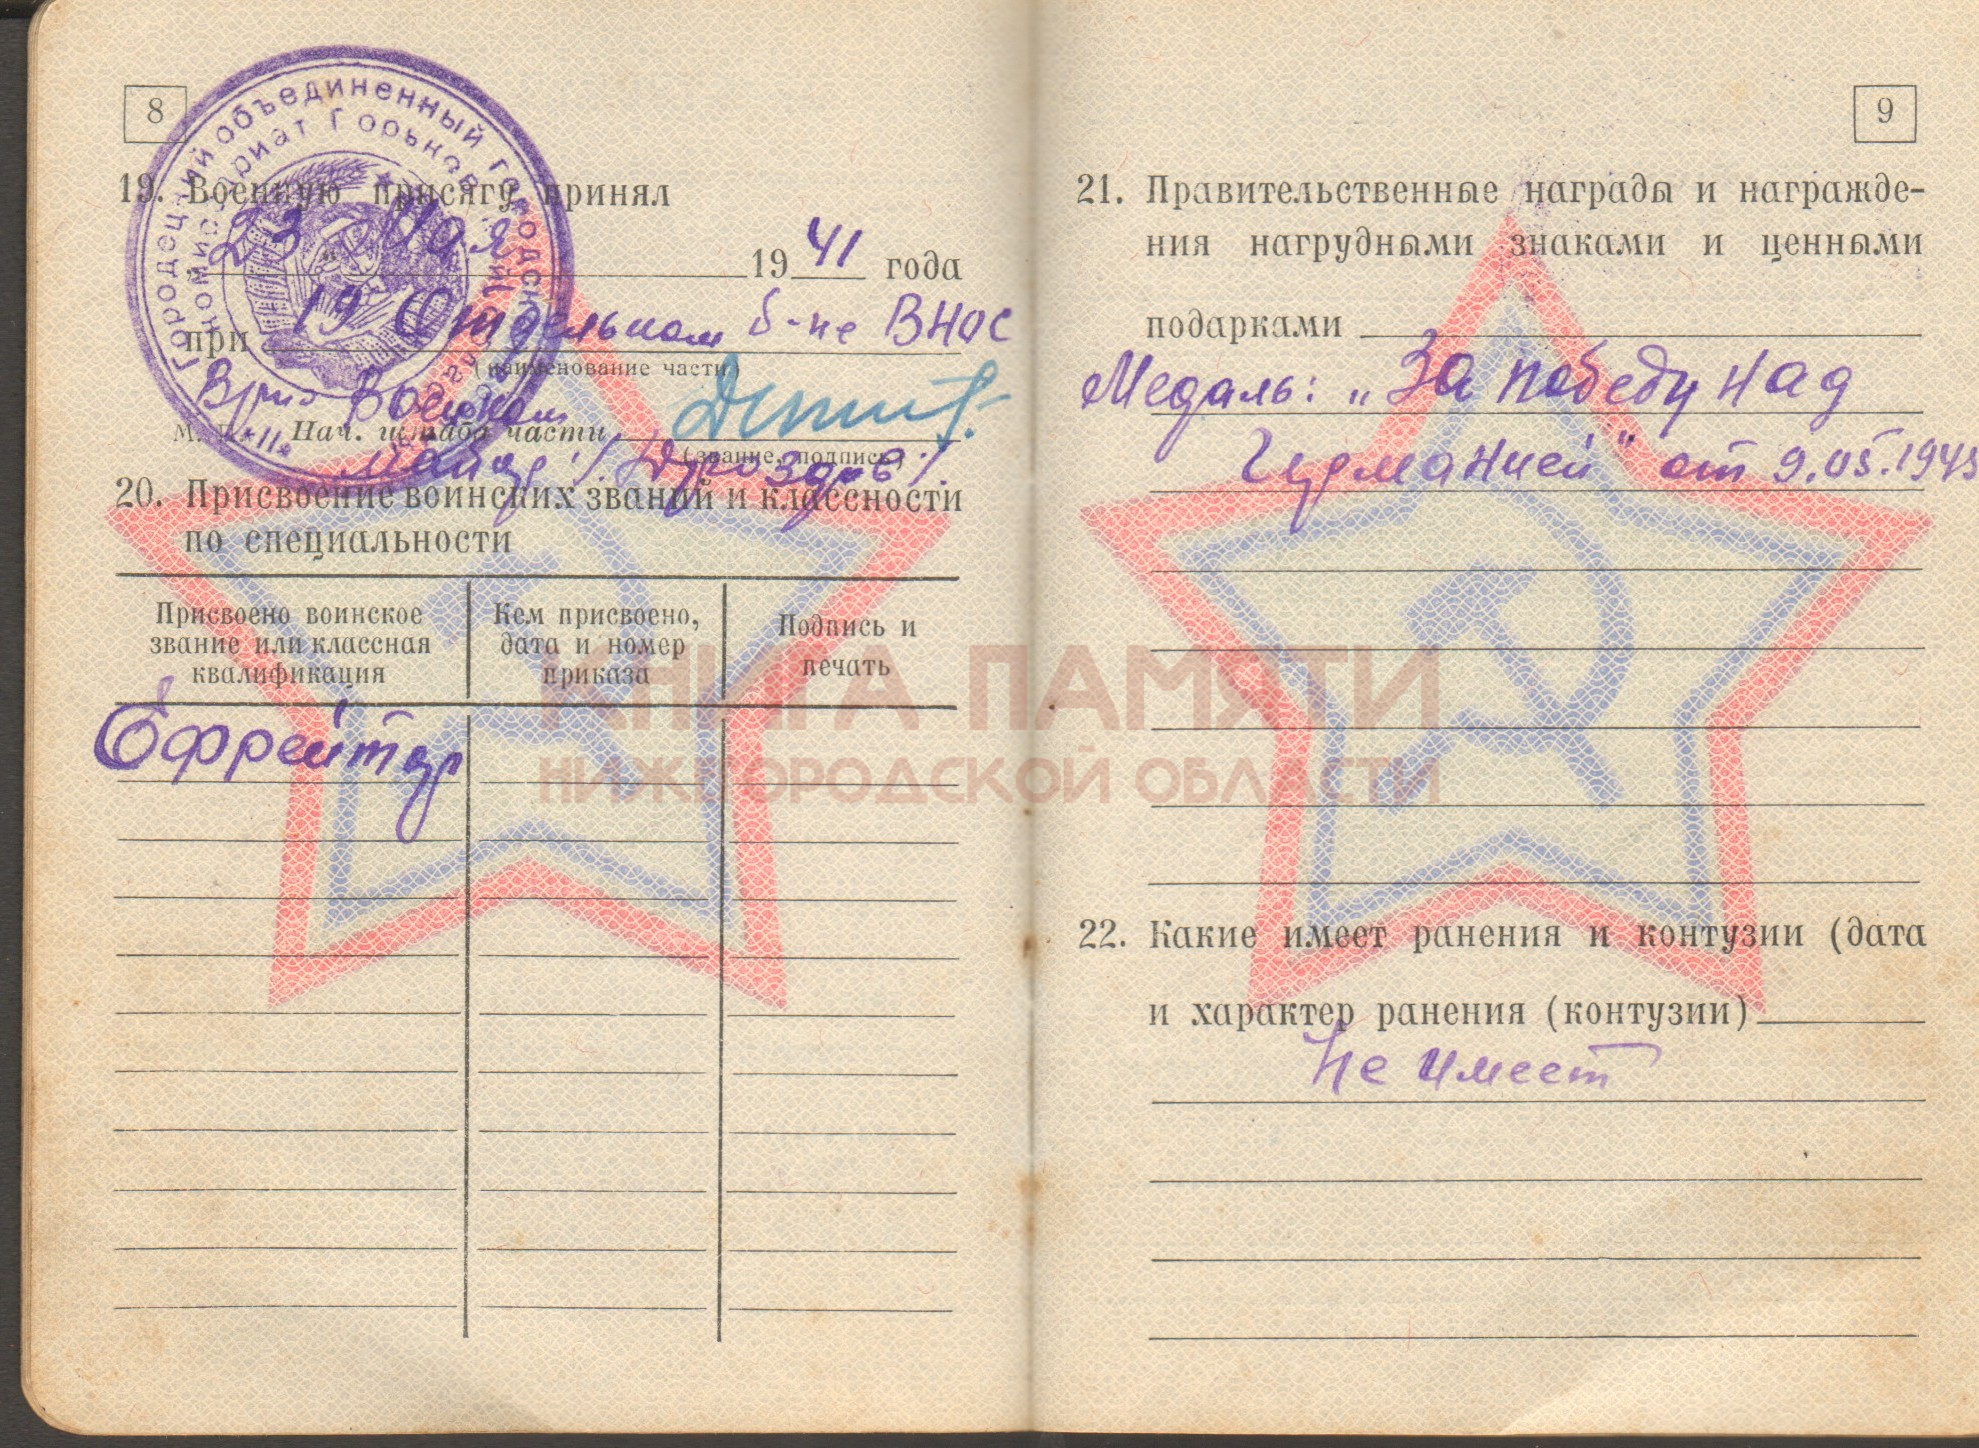 8
Городецкий объединенный городской
комиссариат Горьков
19. Военную присягу принял
23 " Мая 1941 года
при 19 Отдельном б-не ВНОС
(наименование части)
Врио Военком
М. П. Нач. штаба части
(звание, подпись)
майор /Дроздов/.
20. Присвоение воинских званий и классности
по специальности
Присвоено воинское звание или классная квалификация
Кем присвоено, дата и номер приказа
Подпись и печать
Ефрейтор
9
21. Правительственные награды и награжде-
ния нагрудными знаками и ценными
подарками
Медаль: „За победу над
Германией" от 9.05.1945
22. Какие имеет ранения и контузии (дата
и характер ранения (контузии)
Не имеет
КНИГА ПАМЯТИ
НИЖЕГОРОДСКОЙ ОБЛАСТИ